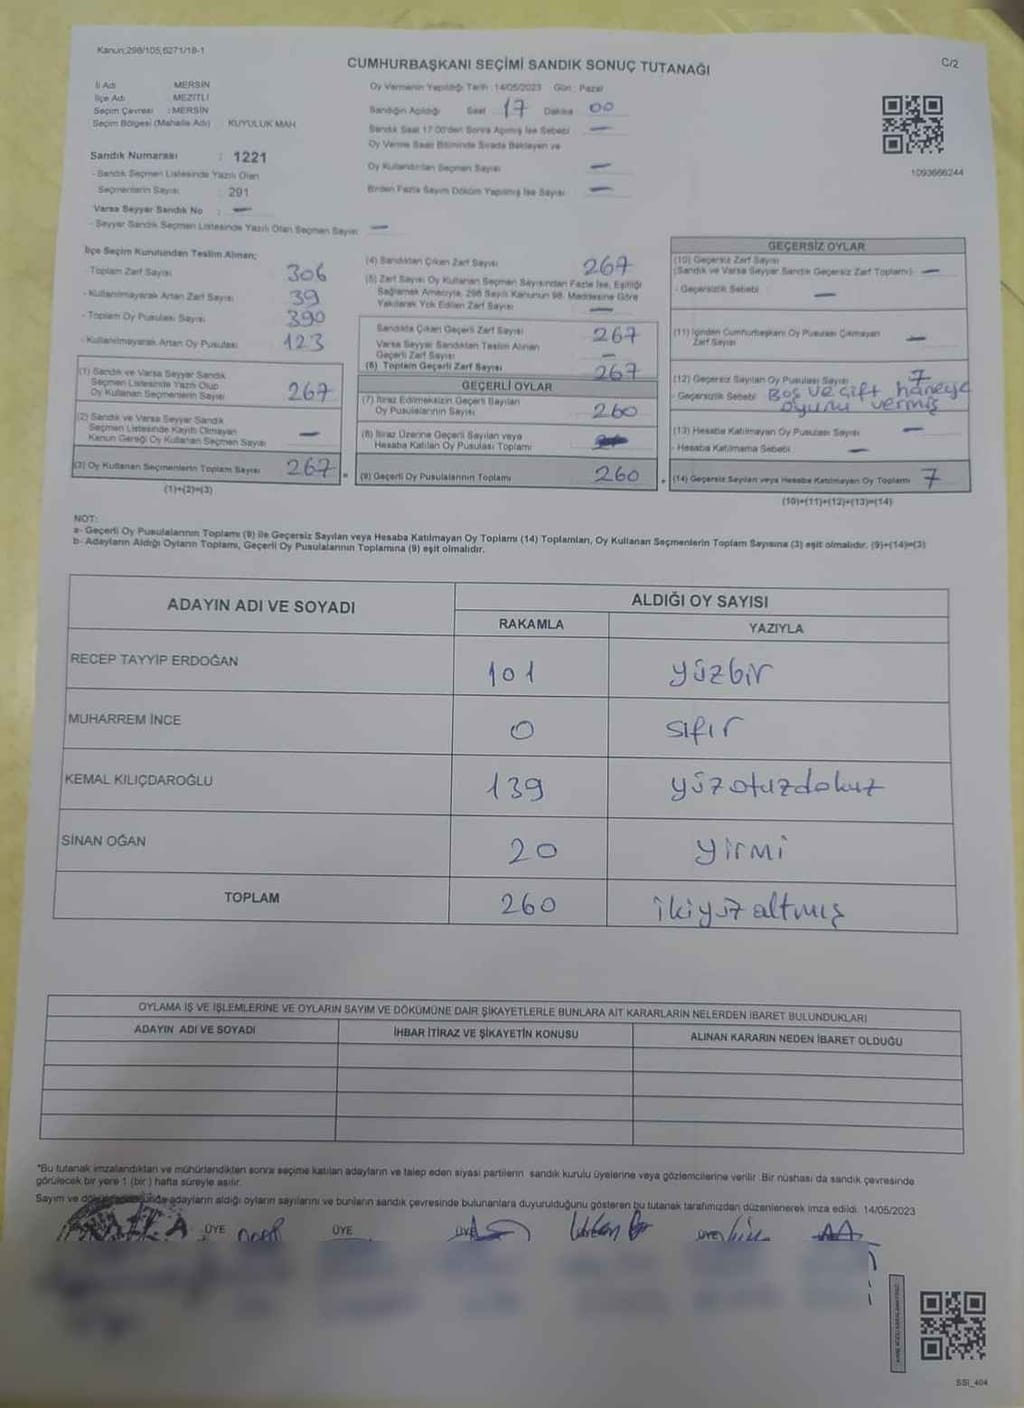 Kanun;298/105,6271/18-1
CUMHURBAŞKANI SEÇİMİ SANDIK SONUÇ TUTANAĞI
C/2
İl Adı : MERSİN
İlçe Adı : MEZİTLİ
Seçim Çevresi : MERSİN
Seçim Bölgesi (Mahalle Adı) : KUYULUK MAH.
Sandık Numarası : 1221
- Sandık Seçmen Listesinde Yazılı Olan
Seçmenlerin Sayısı : 291
Varsa Seyyar Sandık No : —
- Seyyar Sandık Seçmen Listesinde Yazılı Olan Seçmen Sayısı : —
Oy Vermenin Yapıldığı Tarih : 14/05/2023 Gün : Pazar
Sandığın Açıldığı Saat 17 Dakika 00
Sandık Saat 17.00'den Sonra Açılmış İse Sebebi : —
Oy Verme Saati Bitiminde Sırada Bekleyen ve
Oy Kullandırılan Seçmen Sayısı : —
Birden Fazla Sayım Döküm Yapılmış İse Sayısı : —
1093666244
İlçe Seçim Kurulundan Teslim Alınan;
- Toplam Zarf Sayısı 306
- Kullanılmayarak Artan Zarf Sayısı 39
- Toplam Oy Pusulası Sayısı 390
- Kullanılmayarak Artan Oy Pusulası 123
(1) Sandık ve Varsa Seyyar Sandık
Seçmen Listesinde Yazılı Olup
Oy Kullanan Seçmenlerin Sayısı 267
(2) Sandık ve Varsa Seyyar Sandık
Seçmen Listesinde Kayıtlı Olmayan
Kanun Gereği Oy Kullanan Seçmen Sayısı —
(3) Oy Kullanan Seçmenlerin Toplam Sayısı 267
(1)+(2)=(3)
(4) Sandıktan Çıkan Zarf Sayısı 267
(5) Zarf Sayısı Oy Kullanan Seçmen Sayısından Fazla İse, Eşitliği
Sağlamak Amacıyla, 298 Sayılı Kanunun 98. Maddesine Göre
Yakılarak Yok Edilen Zarf Sayısı —
Sandıkta Çıkan Geçerli Zarf Sayısı 267
Varsa Seyyar Sandıktan Teslim Alınan
Geçerli Zarf Sayısı —
(6) Toplam Geçerli Zarf Sayısı 267
GEÇERLİ OYLAR
(7) İtiraz Edilmeksizin Geçerli Sayılan
Oy Pusulalarının Sayısı 260
(8) İtiraz Üzerine Geçerli Sayılan veya
Hesaba Katılan Oy Pusulası Toplamı
(9) Geçerli Oy Pusulalarının Toplamı 260
GEÇERSİZ OYLAR
(10) Geçersiz Zarf Sayısı
(Sandık ve Varsa Seyyar Sandık Geçersiz Zarf Toplamı) —
- Geçersizlik Sebebi —
(11) İçinden Cumhurbaşkanı Oy Pusulası Çıkmayan
Zarf Sayısı —
(12) Geçersiz Sayılan Oy Pusulası Sayısı 7
- Geçersizlik Sebebi Boş ve çift haneye
oyunu vermiş
(13) Hesaba Katılmayan Oy Pusulası Sayısı —
- Hesaba Katılmama Sebebi —
(14) Geçersiz Sayılan veya Hesaba Katılmayan Oy Toplamı 7
(10)+(11)+(12)+(13)=(14)
NOT:
a- Geçerli Oy Pusulalarının Toplamı (9) ile Geçersiz Sayılan veya Hesaba Katılmayan Oy Toplamı (14) Toplamları, Oy Kullanan Seçmenlerin Toplam Sayısına (3) eşit olmalıdır. (9)+(14)=(3)
b- Adayların Aldığı Oyların Toplamı, Geçerli Oy Pusulalarının Toplamına (9) eşit olmalıdır.
ADAYIN ADI VE SOYADI
ALDIĞI OY SAYISI
RAKAMLA YAZIYLA
RECEP TAYYİP ERDOĞAN 101 yüzbir
MUHARREM İNCE 0 sıfır
KEMAL KILIÇDAROĞLU 139 yüzotuzdokuz
SİNAN OĞAN 20 yirmi
TOPLAM 260 ikiyüzaltmış
OYLAMA İŞ VE İŞLEMLERİNE VE OYLARIN SAYIM VE DÖKÜMÜNE DAİR ŞİKAYETLERLE BUNLARA AİT KARARLARIN NELERDEN İBARET BULUNDUKLARI
ADAYIN ADI VE SOYADI İHBAR İTİRAZ VE ŞİKAYETİN KONUSU ALINAN KARARIN NEDEN İBARET OLDUĞU
*Bu tutanak imzalandıktan ve mühürlendikten sonra seçime katılan adayların ve talep eden siyasi partilerin sandık kurulu üyelerine veya gözlemcilerine verilir. Bir nüshası da sandık çevresinde
görülecek bir yere 1 (bir) hafta süreyle asılır.
Sayım ve adayların aldığı oyların sayılarını ve bunların sandık çevresinde bulunanlara duyurulduğunu gösteren bu tutanak tarafımızdan düzenlenerek imza edildi. 14/05/2023
ÜYE ÜYE ÜYE ÜYE
SSI_404